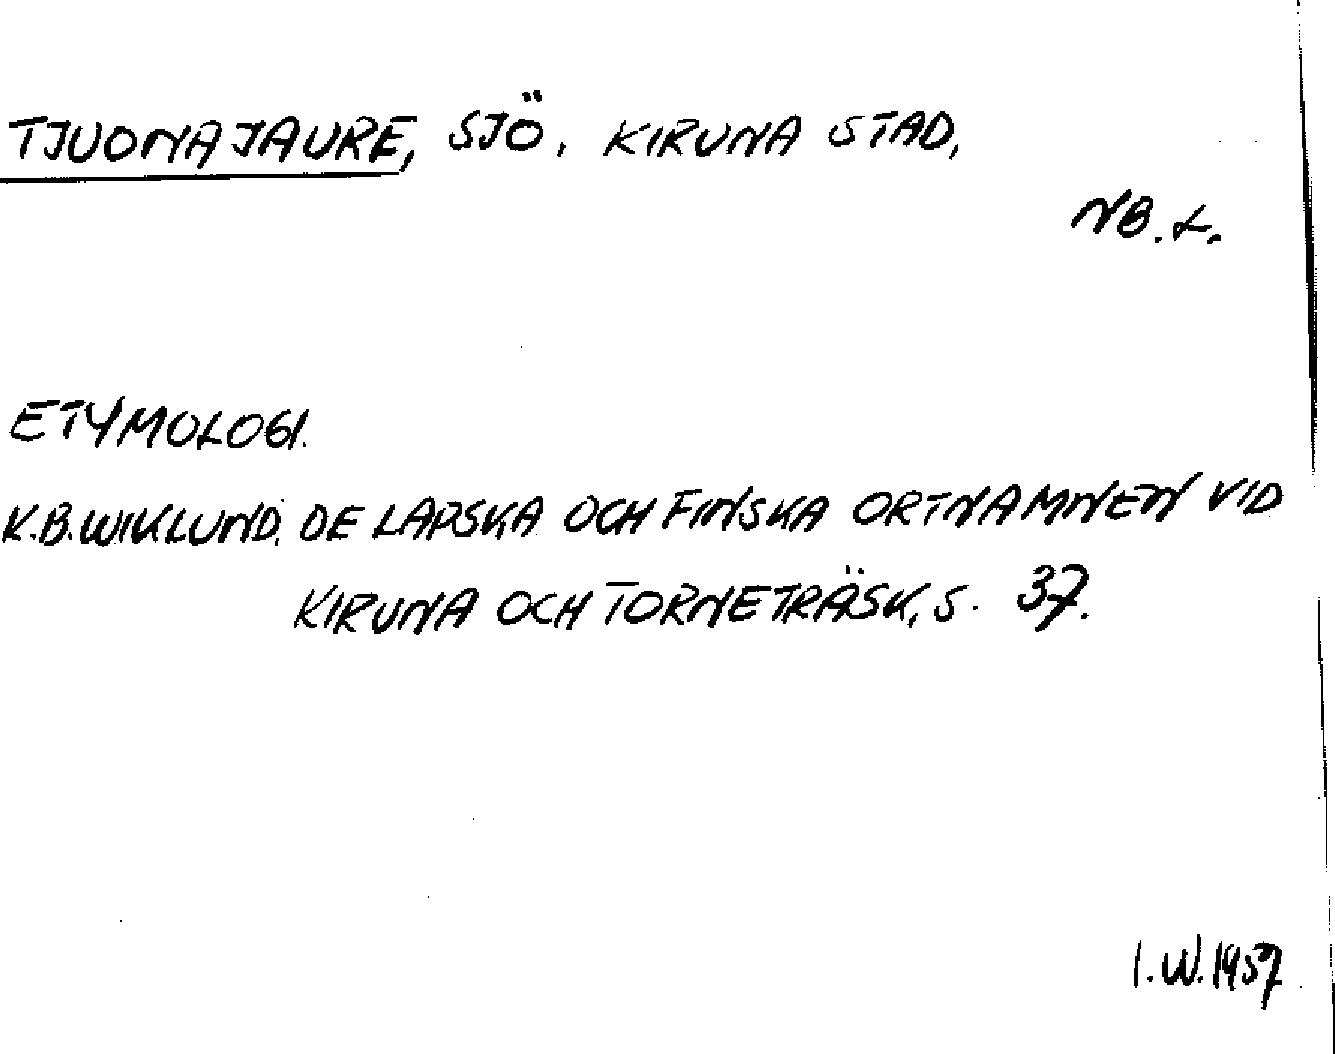 TJUONAJAURE, SJÖ, KIRUNA STAD,
NB. L.
ETYMOLOGI.
K.B. WIKLUND, DE LAPSKA OCH FINSKA ORTNAMNEN VID
KIRUNA OCH TORNETRÄSK, S. 37.
I.W. 1957